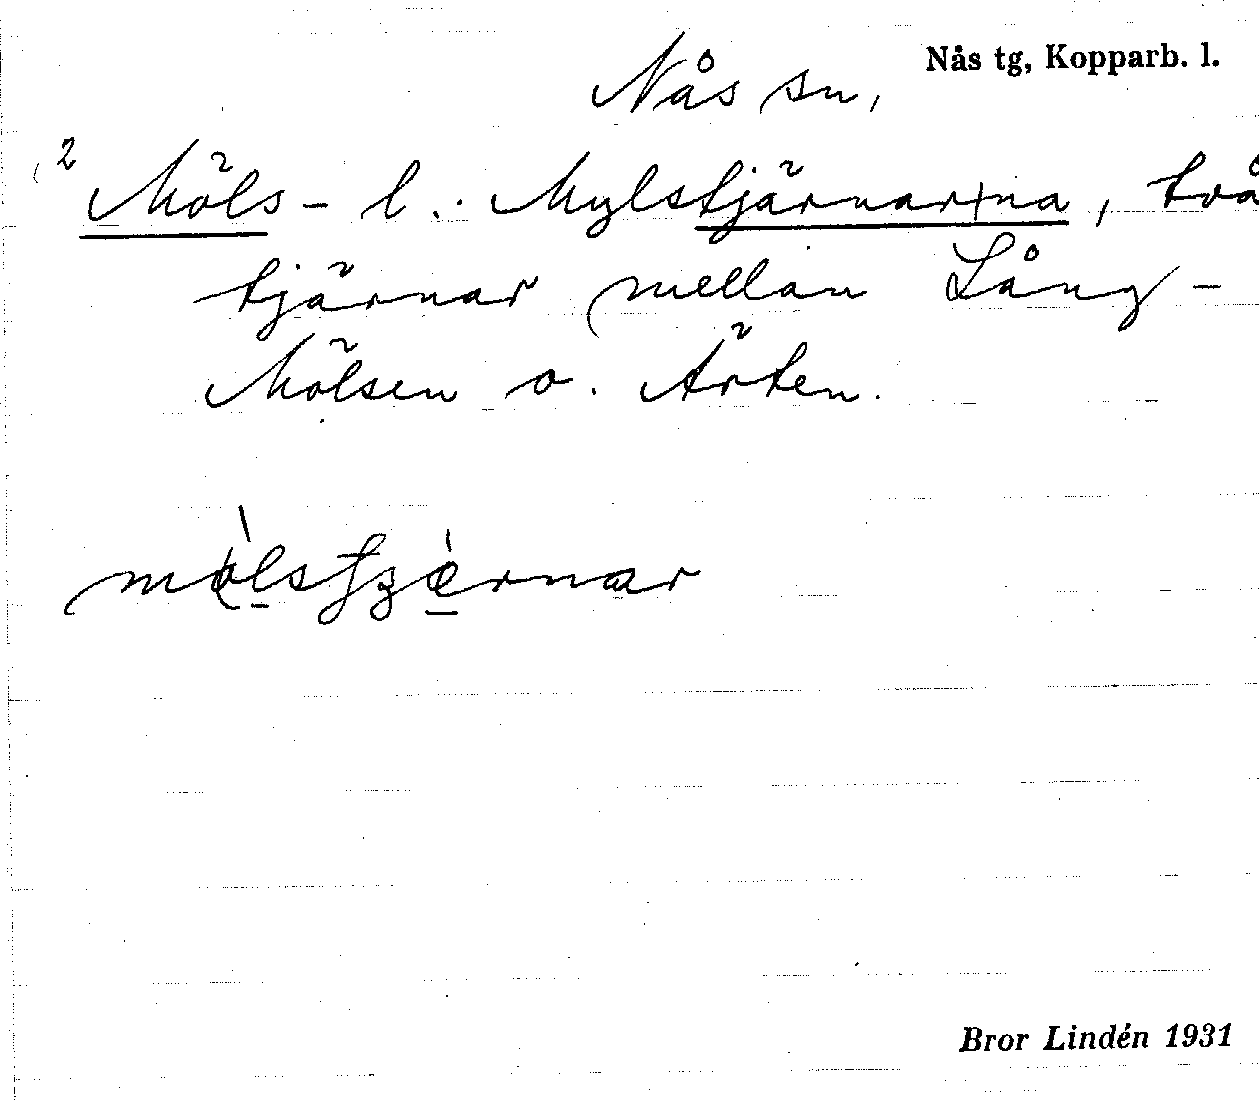 Nås tg, Kopparb. l.
Nås sn,
2 Möls- l. Mylstjärnar+na, två
tjärnar mellan Lång-
Mölsen o. Ärten.
Bror Lindén 1931